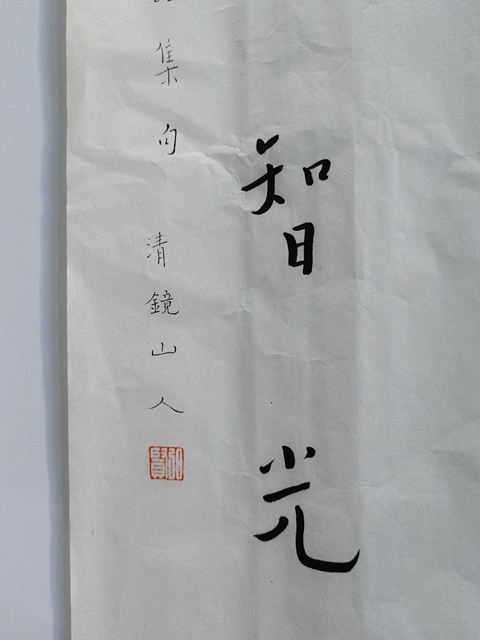 智光
集句 清鏡山人